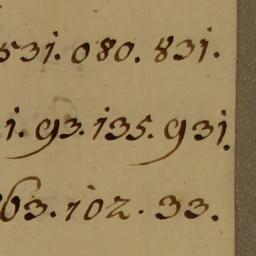 531. 080. 831.
1. 93. 135. 931.
63. 102. 33.